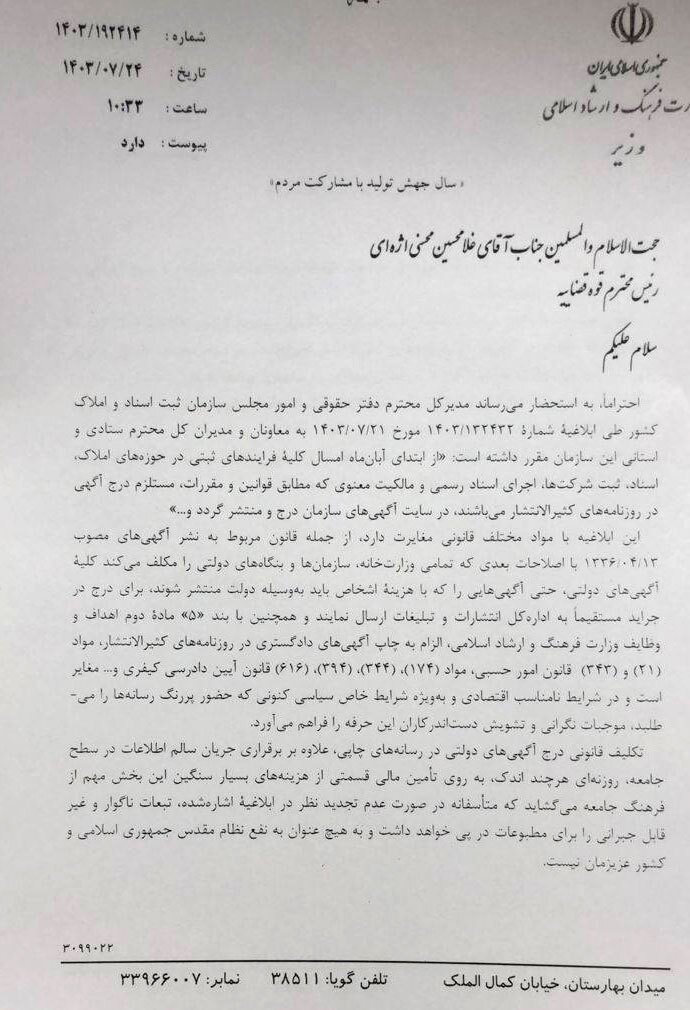 جمهوری اسلامی ایران
ارت فرهنگ و ارشاد اسلامی
وزیر
شماره : ۱۴۰۳/۱۹۲۴۱۴
تاریخ : ۱۴۰۳/۰۷/۲۴
ساعت : ۱۰:۳۳
پیوست : دارد
«سال جهش تولید با مشارکت مردم»
حجت الاسلام والمسلمین جناب آقای غلامحسین محسنی اژه‌ای
رئیس محترم قوه قضاییه
سلام علیکم
احتراماً، به استحضار می‌رساند مدیرکل محترم دفتر حقوقی و امور مجلس سازمان ثبت اسناد و املاک
کشور طی ابلاغیهٔ شمارهٔ ۱۴۰۳/۱۳۲۴۳۲ مورخ ۱۴۰۳/۰۷/۲۱ به معاونان و مدیران کل محترم ستادی و
استانی این سازمان مقرر داشته است: «از ابتدای آبان‌ماه امسال کلیهٔ فرایندهای ثبتی در حوزه‌های املاک،
اسناد، ثبت شرکت‌ها، اجرای اسناد رسمی و مالکیت معنوی که مطابق قوانین و مقررات، مستلزم درج آگهی
در روزنامه‌های کثیرالانتشار می‌باشند، در سایت آگهی‌های سازمان درج و منتشر گردد و...»
این ابلاغیه با مواد مختلف قانونی مغایرت دارد، از جمله قانون مربوط به نشر آگهی‌های مصوب
۱۳۳۶/۰۴/۱۳ با اصلاحات بعدی که تمامی وزارت‌خانه، سازمان‌ها و بنگاه‌های دولتی را مکلف می‌کند کلیهٔ
آگهی‌های دولتی، حتی آگهی‌هایی را که با هزینهٔ اشخاص باید به‌وسیله دولت منتشر شوند، برای درج در
جراید مستقیماً به اداره‌کل انتشارات و تبلیغات ارسال نمایند و همچنین با بند «۵» مادهٔ دوم اهداف و
وظایف وزارت فرهنگ و ارشاد اسلامی، الزام به چاپ آگهی‌های دادگستری در روزنامه‌های کثیرالانتشار، مواد
(۲۱) و (۳۴۳) قانون امور حسبی، مواد (۱۷۴)، (۳۴۴)، (۳۹۴)، (۶۱۶) قانون آیین دادرسی کیفری و... مغایر
است و در شرایط نامناسب اقتصادی و به‌ویژه شرایط خاص سیاسی کنونی که حضور پررنگ رسانه‌ها را می-
طلبد، موجبات نگرانی و تشویش دست‌اندرکاران این حرفه را فراهم می‌آورد.
تکلیف قانونی درج آگهی‌های دولتی در رسانه‌های چاپی، علاوه بر برقراری جریان سالم اطلاعات در سطح
جامعه، روزنه‌ای هرچند اندک، به روی تأمین مالی قسمتی از هزینه‌های بسیار سنگین این بخش مهم از
فرهنگ جامعه می‌گشاید که متأسفانه در صورت عدم تجدید نظر در ابلاغیهٔ اشاره‌شده، تبعات ناگوار و غیر
قابل جبرانی را برای مطبوعات در پی خواهد داشت و به هیچ عنوان به نفع نظام مقدس جمهوری اسلامی و
کشور عزیزمان نیست.
۳۰۹۹۰۲۲
میدان بهارستان، خیابان کمال الملک تلفن گویا: ۳۸۵۱۱ نمابر: ۳۳۹۶۶۰۰۷